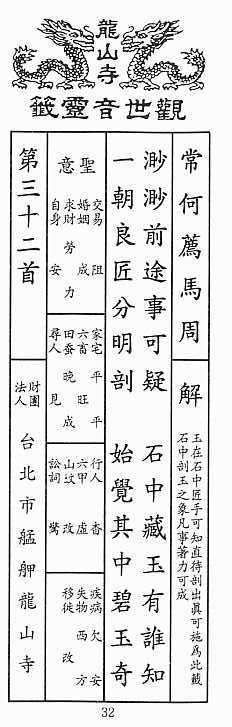 龍山寺
觀世音靈籤
常何薦馬周
解
玉在石中匠手可知直待剖出眞可施為此籤
石中剖玉之象凡事著力可成
渺渺前途事可疑 石中藏玉有誰知
一朝良匠分明剖 始覺其中碧玉奇
聖意
交易 阻
婚姻 成
求財 勞力
自身 安
家宅 平
六畜 旺
田蚕 晚成
尋人 見
行人 杳
六甲 虛
山坟 改
訟詞 驚
疾病 欠安
失物 西方
移徙 改
第三十二首
財團法人台北市艋舺龍山寺
32